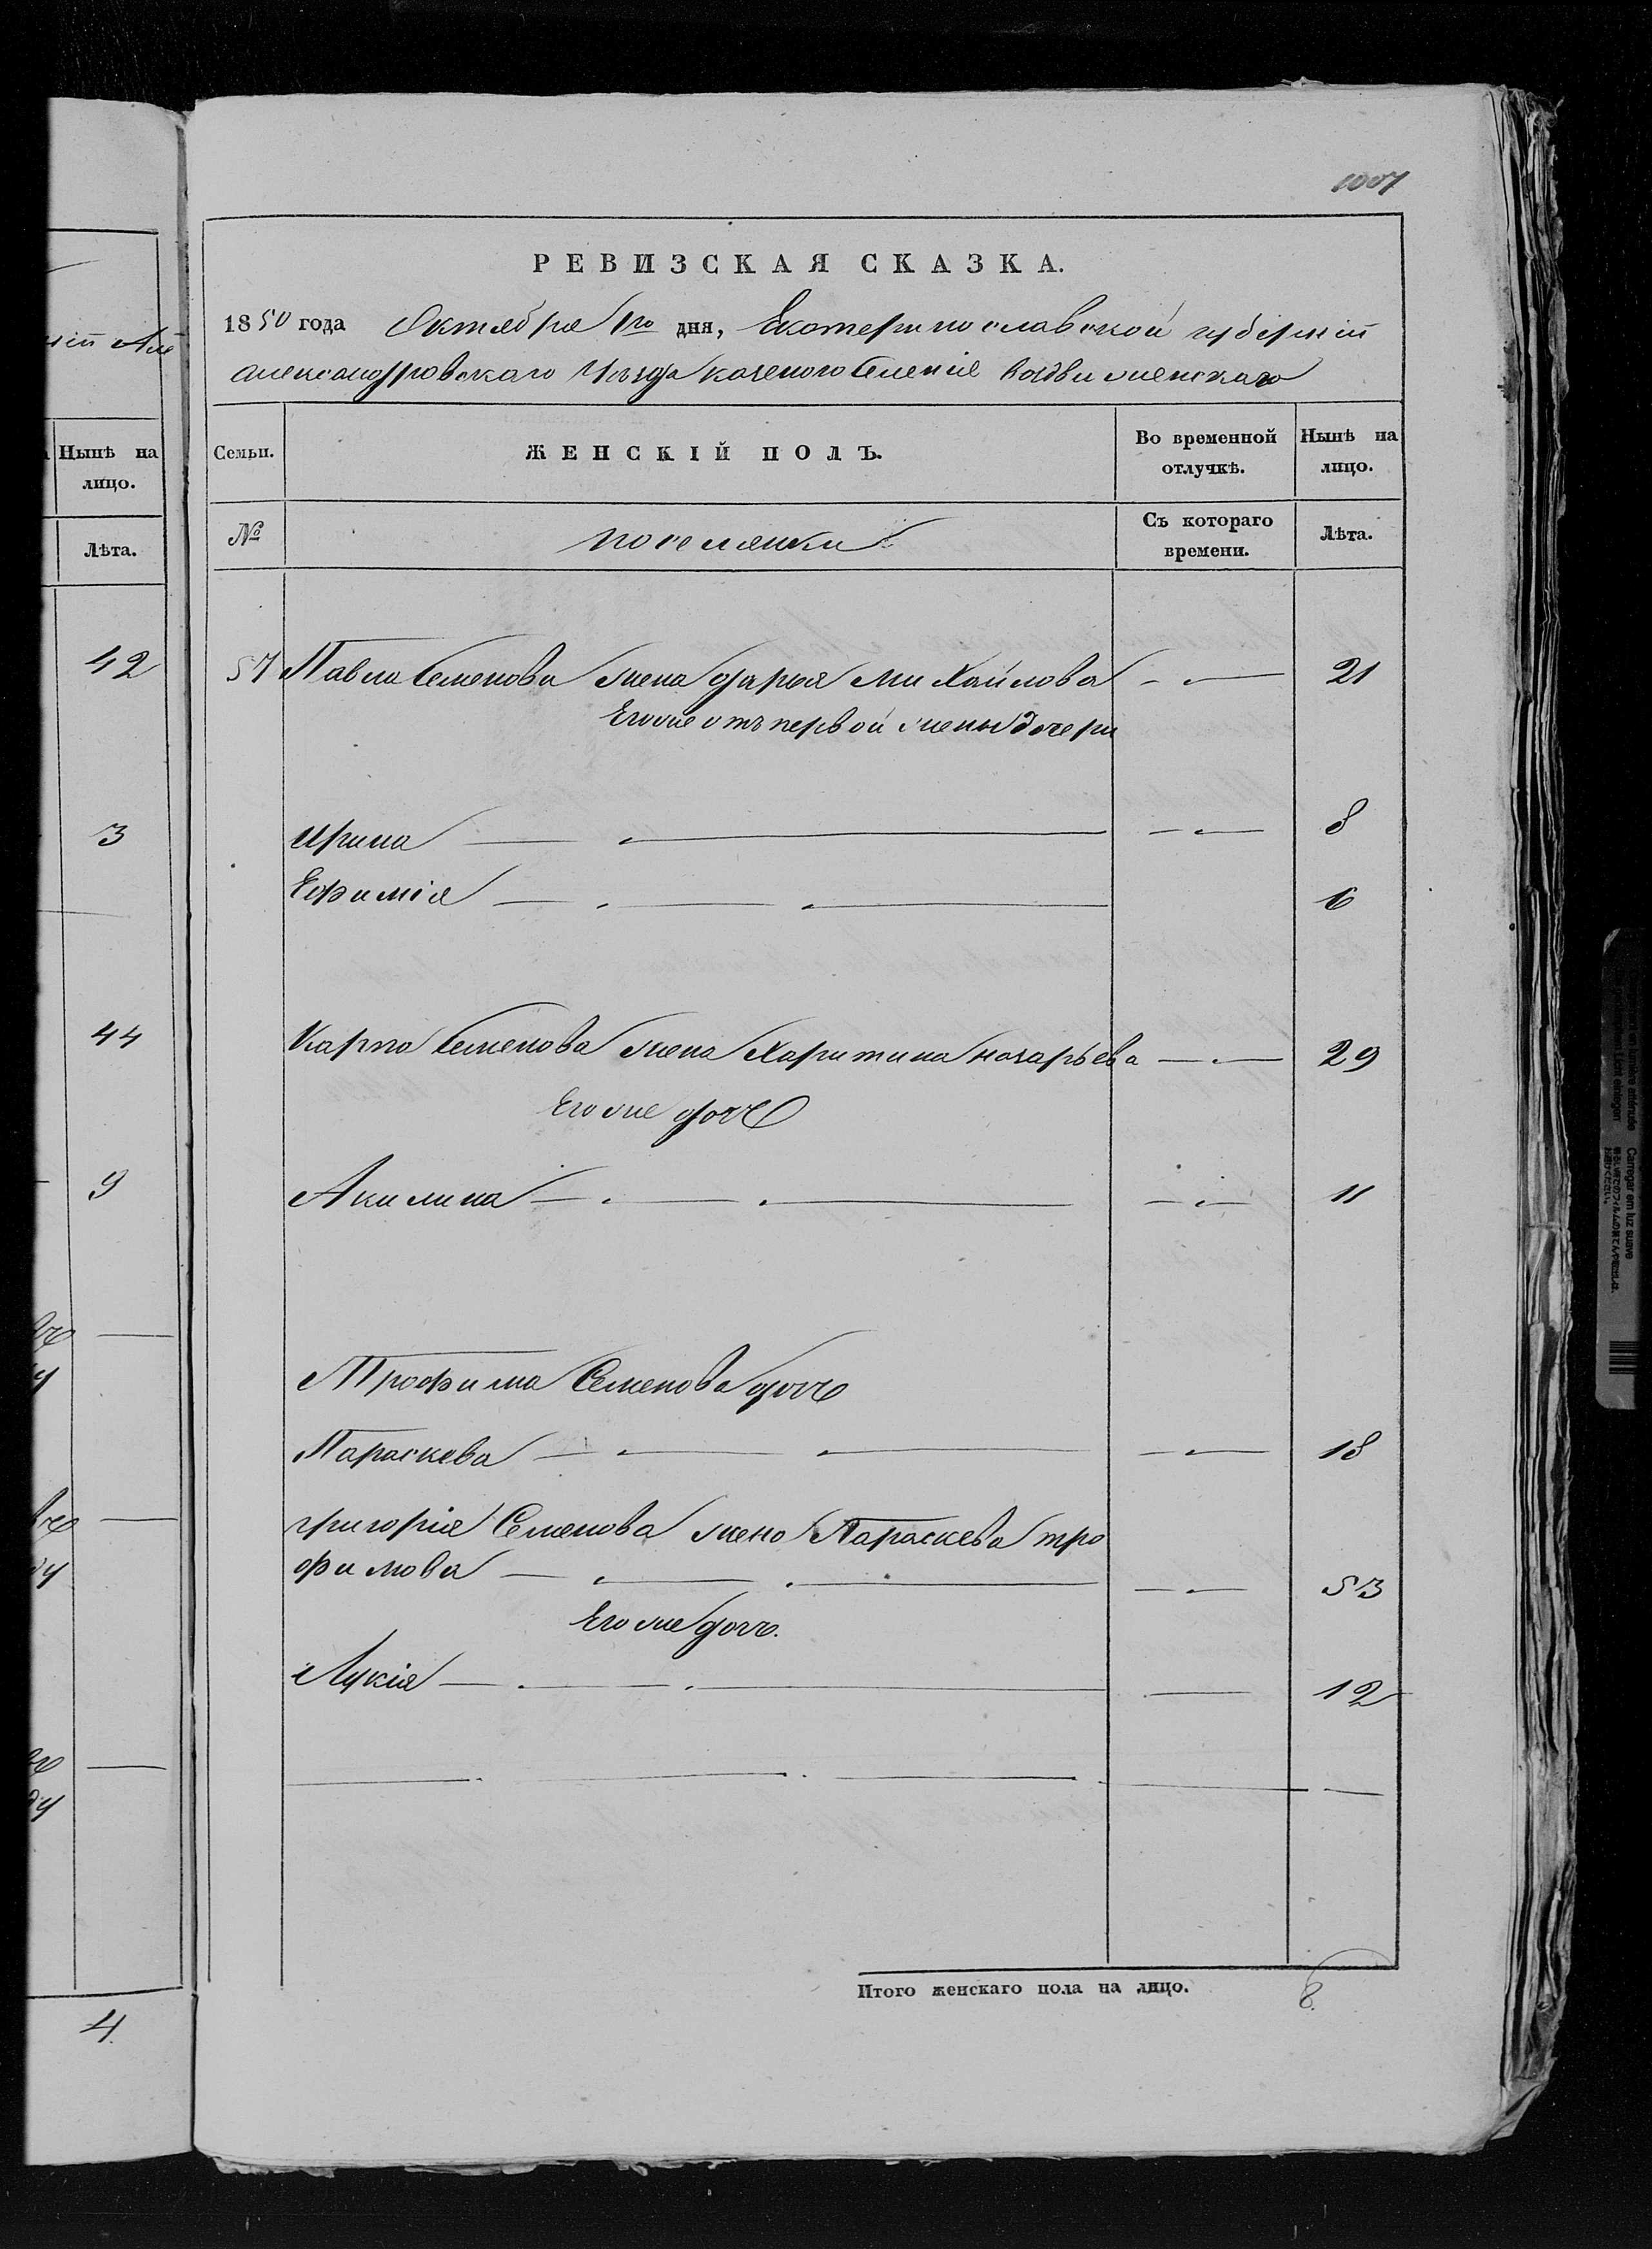 1007
РЕВИЗСКАЯ СКАЗКА.
1850 года Октября 1го дня, Екатеринославской губерніи
александровскаго Уезда казеного Селенія воздвиженскаго
Семьи.
ЖЕНСКІЙ ПОЛЪ.
Во временной отлучкѣ.
Нынѣ на лицо.
№
поселянки
Съ котораго времени.
Лѣта.
57 Павла Семенова жена дарья Михайлова — — 21
Егоже отъ первой жены дочери
ирина — — — — 8
Ефимія — — — 6
Карпа Семенова жена Харитина назарьева — — 29
Егоже дочь
Акилина — — — — — 11
Трофима Семенова дочь
Параскева — — — — — 18
григорія Семенова жена Параскева тро
фимова — — — — — 53
Егоже дочь.
Лукія — — — — 12
Итого женскаго пола на лицо. 8.
Нынѣ на
лицо.
Лѣта.
42
3
44
9
4.